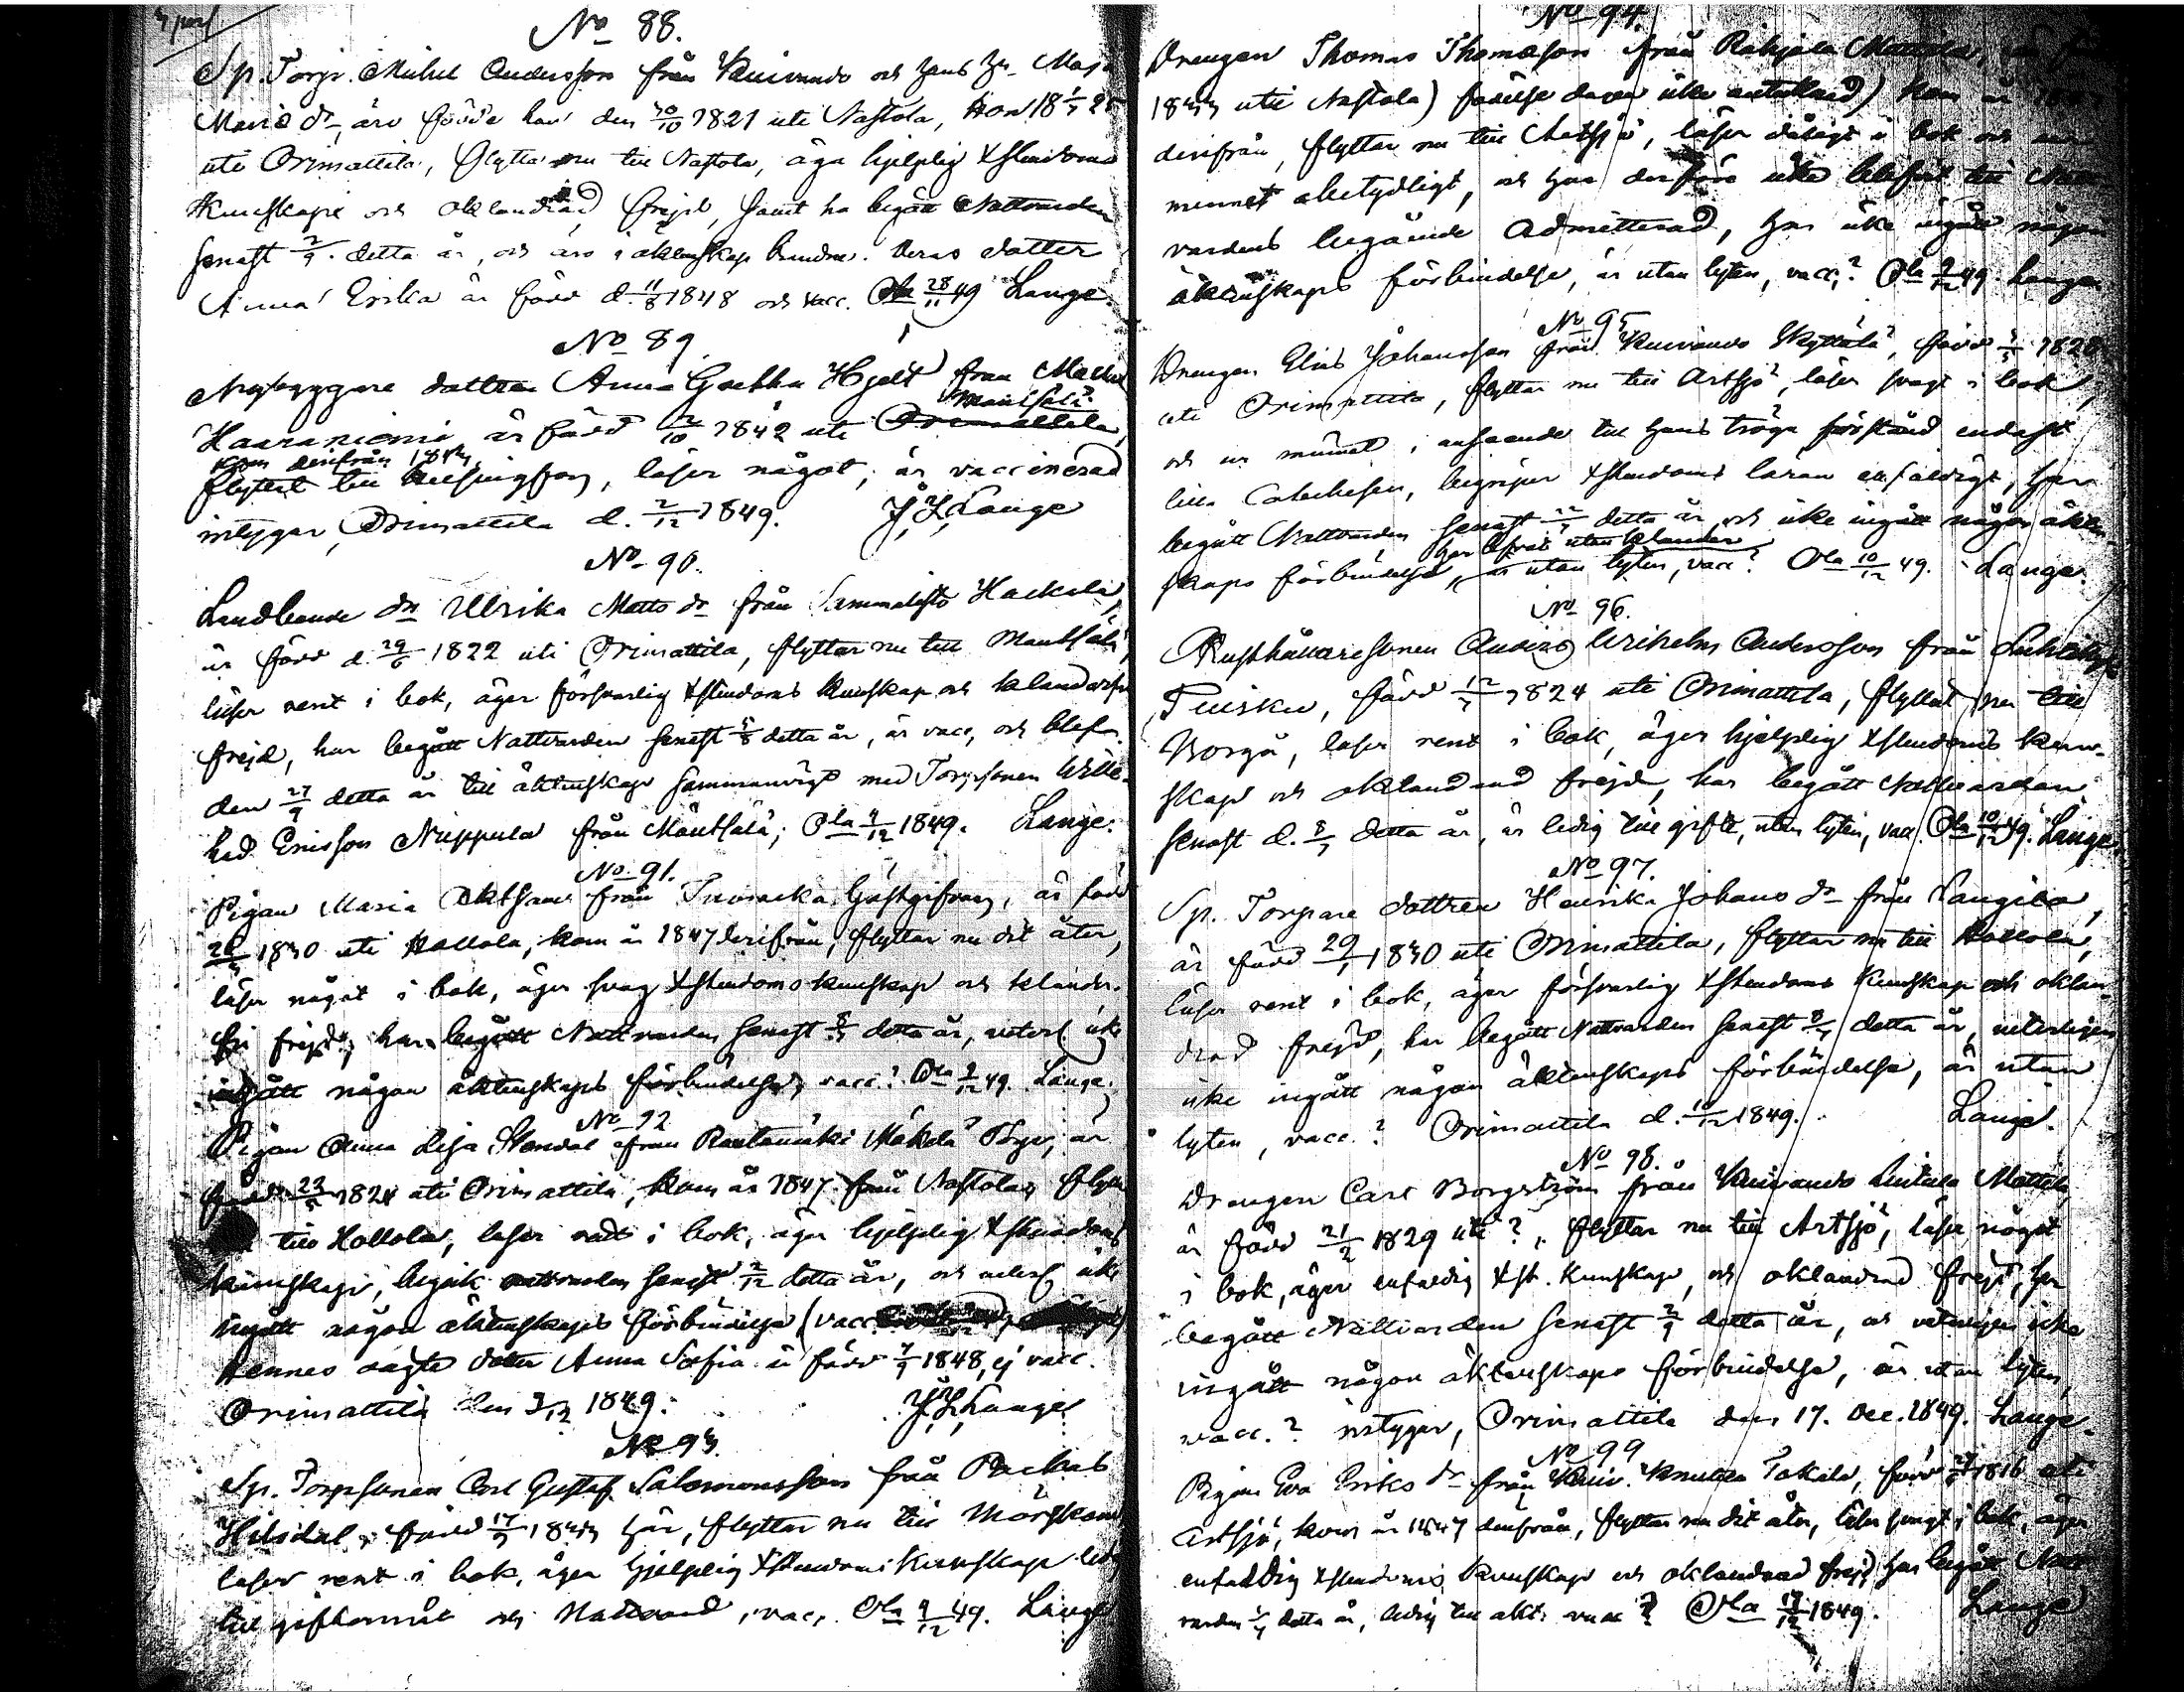 No 88.
Sp. Torpr. Mickel Andersson från Kuivando och hans hu Maja
Maria dr, äro födde han den 30/10 1821 uti Nastola, Hon 18
uti Orimattila, flytta nu till Nastola, äga hjelplig Xstendoms
kunskape och oklandrad frejd, samt ha begått Nattvarden
senast 2/9 detta år, och äro i äktenskap bundne. Deras dotter
Anna Erika är född d. 11/8 1848 och vacc. Ola 28/11 49 Lange.
No 89.
Nybyggare dottren Anna Greckha Hjelt från
Mäntsälä
Haaraniemi är född 2/10 1842 uti Orimattila,
kom derifrån
flyttat till Helsingfors, läser något, är vaccinerad
intygar, Orimattila d. 2/12 1849. J. Lange
No 90.
Landbonde dn Ulrika Matts dr från Sammalisto Hackola,
är född d. 29/6 1822 uti Orimattila, flyttar nu till Mäntsälä,
läser rent i bok, äger försvarlig Xstendoms kunskap och klanderfri
frejd, har begått Nattvarden senast 5/8 detta år, är vacc, och blef
den 27/9 detta år till äktenskap sammanvigd med Torpsonen Wille-
had Ericsson Nuppula från Mäntsälä; Ola 4/12 1849. Lange.
No 91.
Pigan Maria från Gästgifveri, är född
1830 uti Hollola, kom år 1847 derifrån, flyttar nu dit åter,
läser något i bok, äger svag Xstendoms kunskap och klander-
fri frejd, har begått Nattvarden senast detta år, veterl. icke
ingått någon äktenskaps förbindelse, vacc? Ola 49. Lange.
No 92
Pigan Anna Lisa Stendal från Rautamäki Mäkelä Torp, är
född 23 1824 uti Orimattila, kom år 1847 från Nastola, flyttar
till Hollola, läser i bok, äger hjelplig Xstendoms
kunskap, begick nattvarden senast 2/12 detta år, och veterl. icke
ingått någon äktenskaps förbindelse (vacc
Hennes oägta dotter Anna Sofia är född 7/9 1848, ej vacc.
Orimattila den 3/12 1849. J. Lange
No 93.
Sp. Torpsonen Carl Gustaf Salomonsson från Packas
Hilsdal, född 17 1833 här, flyttar nu till Mörskom
läser rent i bok, äger hjelplig Xstendoms kunskap
till giftermål och Nattvard, vacc, Ola 9/12 49. Lange
No 94.
Drengen Thomas Thomasson från Rahjala Mattila,
1833 uti Nastola) födelse dagen icke antecknad) kom år
derifrån, flyttar nu till Artsjö, läser dåligt i bok och
minnet obetydligt, och har derföre icke blifvit till Natt
vardens begående Admitterad, har icke ingått någon
äktenskaps förbindelse, är utan lyten, vacc,? Ola 9/12 49. Lange
No 95
Drengen Elias Johansson från Kuivando Skyttälä, född 1820
uti Orimattila, flyttar nu till Artsjö, läser svagt i bok,
och ur minnet, i anseende till hans tröga förstånd endast
lilla Catechesen, begriper Xstendoms läran enfaldigt, har
begått Nattvarden senast 22/7 detta år, och icke ingått någon äkten
har lefvat utan klander
skaps förbindelse, är utan lyten, vacc? Ola 10/12 49. Lange.
No 96.
Rusthållaresonen Anders Wilhelm Andersson från
Tuisku, född 12/7 1824 uti Orimattila, flyttat nu till
Borgå, läser rent i bok, äger hjelplig Xstendoms kun-
skap och oklandrad frejd, har begått Nattvarden
senast d. 8/7 detta år, är ledig till gifte, utan lyten, vacc. Ola 10/12 49. Lange.
No 97.
Sp. Torpare dottren Henrika Johans dr från Pangila,
är född 29 1830 uti Orimattila, flyttar nu till Hollola,
läser rent i bok, äger försvarlig Xstendoms kunskap och oklan-
drad frejd, har begått Nattvarden senast 8/7 detta år, veterligen
icke ingått någon äktenskaps förbindelse, är utan
lyten, vacc.? Orimattila d. 10/12 1849. Lange.
No 98.
Drengen Carl Borgström från Kuivando Mattila,
är född 21/2 1829 uti ?, flyttar nu till Artsjö, läser något
i bok, äger enfaldig Xst. kunskap, och oklandrad frejd, har
begått Nattvarden senast 2/9 detta år, och veterligen icke
ingått någon äktenskaps förbindelse, är utan lyten,
vacc.? intygar, Orimattila den 17. Dec. 1849. Lange.
No 99
Pigan Eva Eriks dr från Kuiv. Tokila, född 1816 uti
Artsjö, kom år 1847 derifrån, flyttar nu dit åter, läser svagt i bok, äger
enfaldig Xstendoms kunskap och oklandrad frejd, har begått Natt
varden detta år, ledig till äkt. vacc? Ola 17/12 1849. Lange